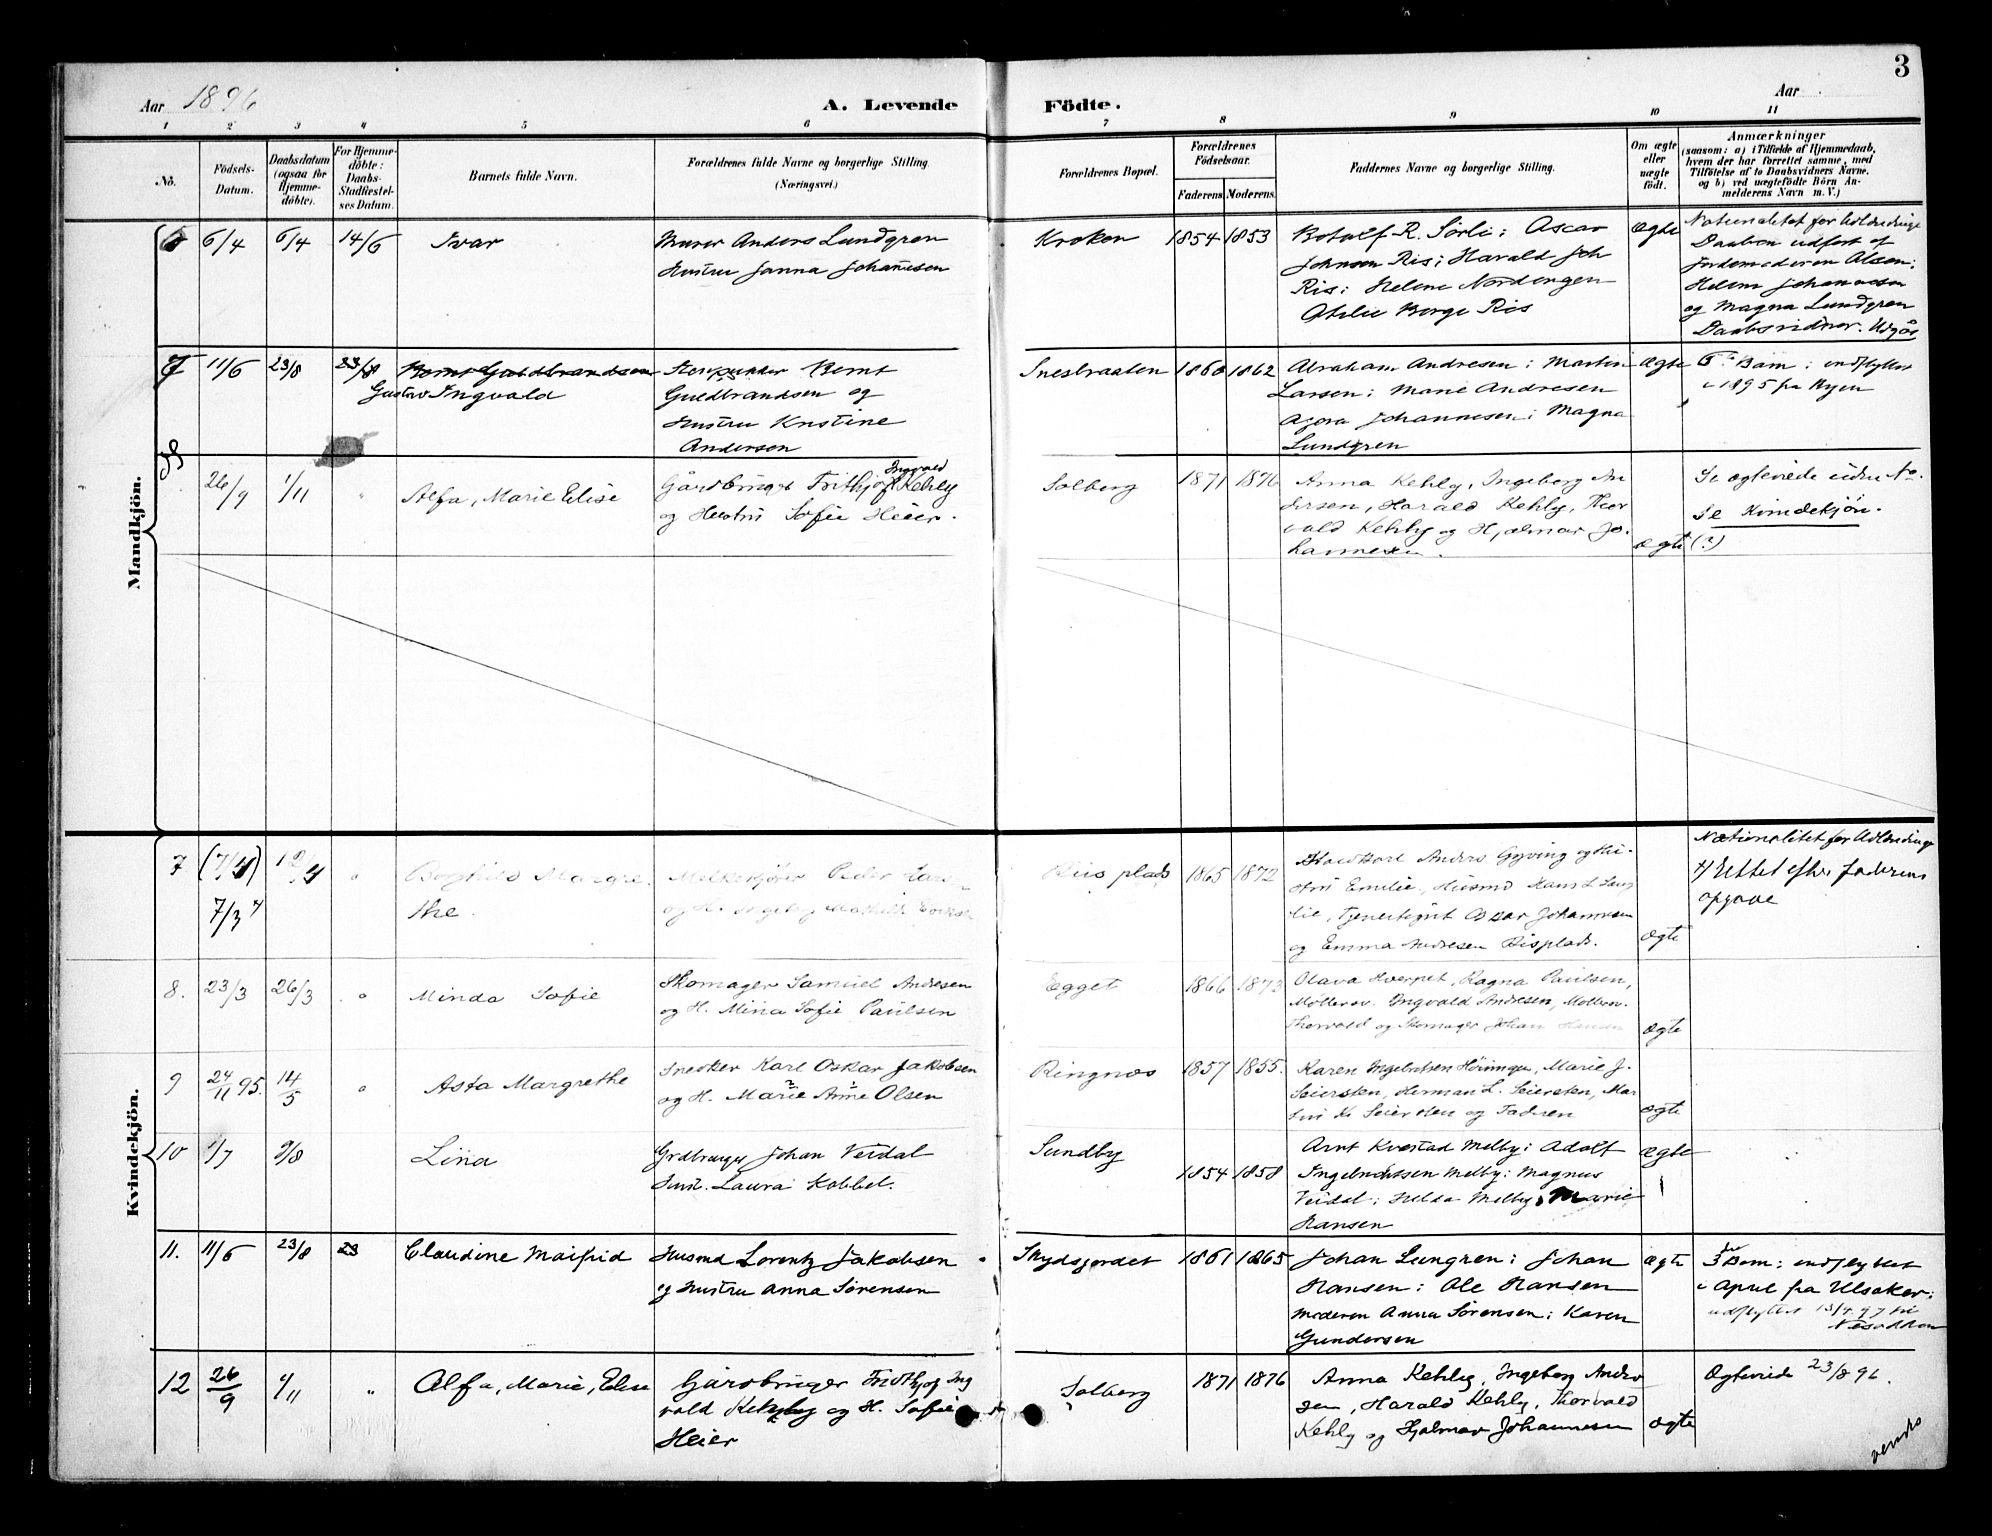 3
Aar 1896
A. Levende Födte.
Aar
1 2 3 4 5 6 7 8 9 10 11
No.
Födsels-Datum.
Daabsdatum (ogsaa for Hjemme-döbte).
For Hjemme-döbte: Daabs-Stadfæstel-ses Datum.
Barnets fulde Navn.
Forældrenes fulde Navne og borgerlige Stilling. (Næringsvei.)
Forældrenes Bopæl.
Forældrenes Födselsaar.
Faderens. Moderens.
Faddernes Navne og borgerlige Stilling.
Om ægte eller uægte födt.
Anmærkninger
(saasom: a) i Tilfælde af Hjemmedaab,
hvem der har forrettet samme, med
Tilföielse af to Daabsvidners Navne.
og b) ved uægtefödte Börn An-
melderens Navn m. V.)
Mandkjön.
6/4 6/4 14/6 Ivar
Murer Anders Lundgren
Hustru Janna Johannesen
Kroken 1854 1853
Botolf R. Sörli; Oscar
Johnsen Ris; Harald Joh
Ris; Helene Nordengen
Ægte
Nationalitet for Udlændinge
Daaben udfört af
Jordemoderen Olsen;
Helene Johannesen
og Magna Lundgren
Daabsvidner.
7 11/6 23/8 23/8 Bernt Guldbrandsen
Gustav Ingvald
Bernt
Guldbrandsen og
Hustru Kristine
Andersen
1860 1862
Abraham Andresen; Martin
Larsen; Marie Andresen
Johannesen; Magna
Lundgren
Ægte
Barn; indflyttet
i 1895 fra
26/9 1/11 " Alfa, Marie Elise
Gårdbruger Frithjof Ingvald Kehly
og Hustru Sofie Heier.
Solberg 1871 1876
Anna Kehly, Ingeborg An
dersen, Harald Kehly, Thor
vald Kehly og Hjalmar Jo-
hannesen.
ægte
Se Kvindekjön.
(?)
Kvindekjön.
7 (7/4) 7/3 Borghild Margre-
the.
Peder Larsen
og H. Ingeborg Mathilde
Riis plads 1865 1872
Anders Gyving og Hu-
stru Emilie, Husmd Hans L.
Johannesen
og Emma Andresen Risplads.
ægte
Nationalitet for Udlændinge
Rettet efter faderens
opgave
8. 23/3 26/3 " Minda Sofie
Skomager Samuel Andresen
og H. Mina Sofie Paulsen
Egget 1866 1873
Olava Hverpet, Ragna Paulsen,
Ingvald Andresen,
Thorvald og Skomager Johan Hansen
ægte
9 24/11 95. 14/5 " Asta Margrethe
Snedker Karl Oskar Jakobsen
og H. Marie Anne Olsen
Ringnæs 1857 1855.
Karen Marie J.
Seiersten, Herman L. Seiersten, Mar
Seiersten og Faderen
ægte
10 1/7 9/8 Lina
Grdbruger Johan Veidal
Hust. Laura Kobbel.
Sundby 1854 1858
Arnt Kvestad Melby; Adolf
Ingebrichtsen Melby; Magnus
Veidal; Hilda Melby; Marie
Hansen
Ægte
11. 11/6 23/8 23 Claudine Maifrid
Husmd Lorentz Jakobsen
og Hustru Anna Sörensen
Skydsjordet 1861 1865
Johan Lungren; Johan
Hansen; Ole Hansen
Moderen Anna Sörensen; Karen
Gundersen
Ægte
indflyttet
i April fra Ulsaker;
udflyttet 13/4 97 til
Nesodden
12 26/9 1/11 " Alfa, Marie, Elise
Gårdbruger Fridthjof Ing
vald Kehly og H. Sofie
Heier
Solberg 1871 1876
Anna Kehly, Ingeborg Andre
sen, Harald Kehly, Thorvald
Kehly og Hjalmar Johannesen
ægte
Ægteviede 23/8 96.
vend